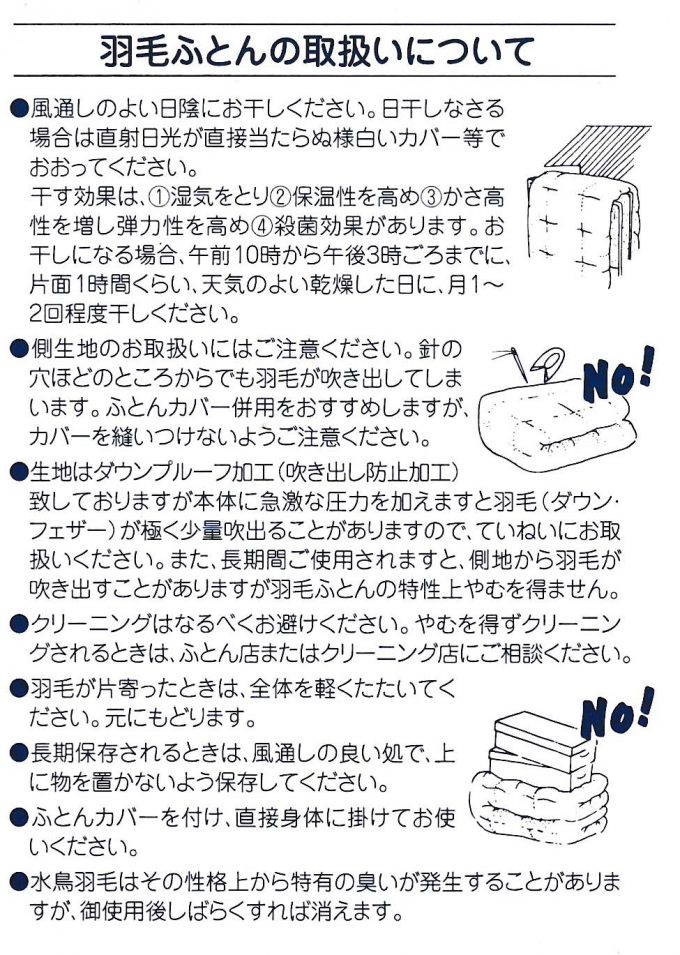 羽毛ふとんの取扱いについて
●風通しのよい日陰にお干しください。日干しなさる
場合は直射日光が直接当たらぬ様白いカバー等で
おおってください。
干す効果は、①湿気をとり②保温性を高め③かさ高
性を増し弾力性を高め④殺菌効果があります。お
干しになる場合、午前10時から午後3時ごろまでに、
片面1時間くらい、天気のよい乾燥した日に、月1〜
2回程度干しください。
●側生地のお取扱いにはご注意ください。針の
穴ほどのところからでも羽毛が吹き出してしま
います。ふとんカバー併用をおすすめしますが、
カバーを縫いつけないようご注意ください。
NO!
●生地はダウンプルーフ加工(吹き出し防止加工)
致しておりますが本体に急激な圧力を加えますと羽毛(ダウン・
フェザー)が極く少量吹出ることがありますので、ていねいにお取
扱いください。また、長期間ご使用されますと、側地から羽毛が
吹き出すことがありますが羽毛ふとんの特性上やむを得ません。
●クリーニングはなるべくお避けください。やむを得ずクリーニン
グされるときは、ふとん店またはクリーニング店にご相談ください。
●羽毛が片寄ったときは、全体を軽くたたいてく
ださい。元にもどります。
●長期保存されるときは、風通しの良い処で、上
に物を置かないよう保存してください。
NO!
●ふとんカバーを付け、直接身体に掛けてお使
いください。
●水鳥羽毛はその性格上から特有の臭いが発生することがありま
すが、御使用後しばらくすれば消えます。